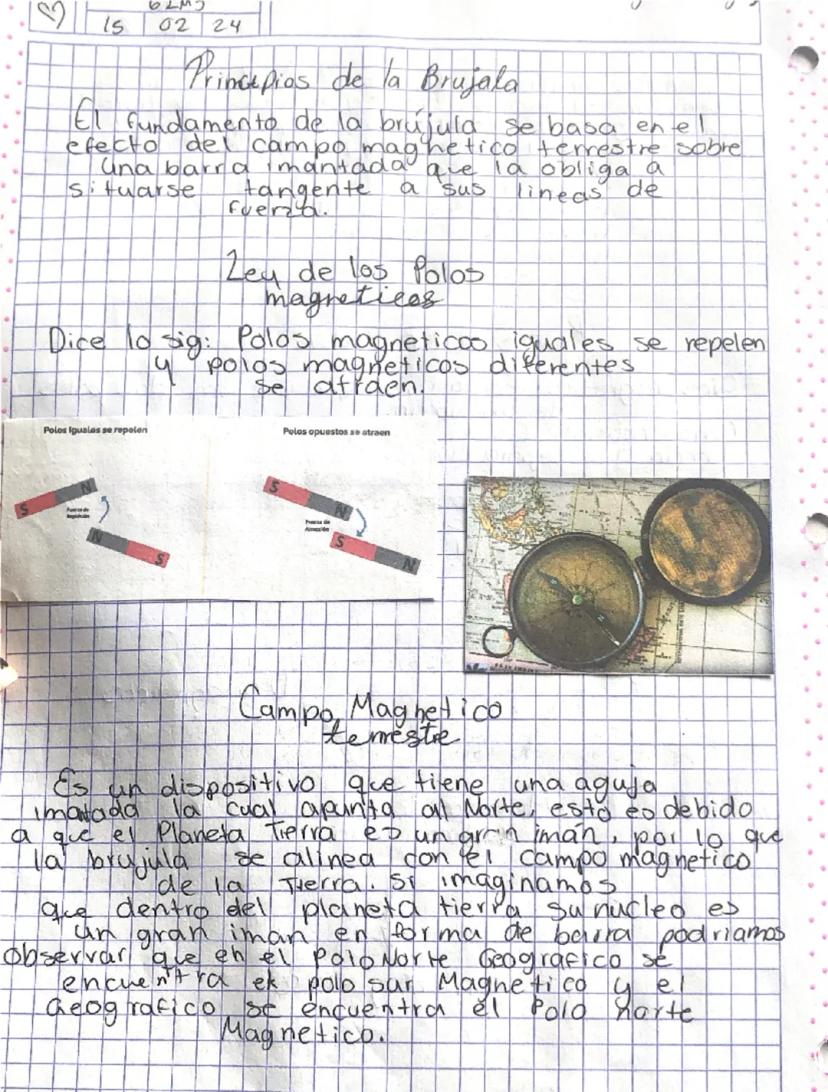 6LM5
15 02 24
Principios de la Brujala
El fundamento de la brújula se basa en el
efecto del campo magnetico terrestre sobre
una barra imantada que la obliga a
situarse tangente a sus lineas de
fuerza.
Ley de los Polos
magneticos
Dice lo sig: Polos magneticos iguales se repelen
y polos magneticos diferentes
se atraen.
Polos iguales se repelen
Polos opuestos se atraen
S N
Fuerza de
Repulsión
N S
S N
Fuerza de
Atracción
S N
Campo Magnetico
terrestre
Es un dispositivo que tiene una aguja
imatada la cual apunta al Norte, esto es debido
a que el Planeta Tierra es un gran imán, por lo que
la brujula se alinea con el campo magnetico
de la Tierra. Si imaginamos
que dentro del planeta tierra su nucleo es
un gran iman en forma de barra podriamos
observar que en el Polo Norte Geografico se
encuentra ek polo sur Magnetico y el
Geografico se encuentra el Polo norte
Magnetico.